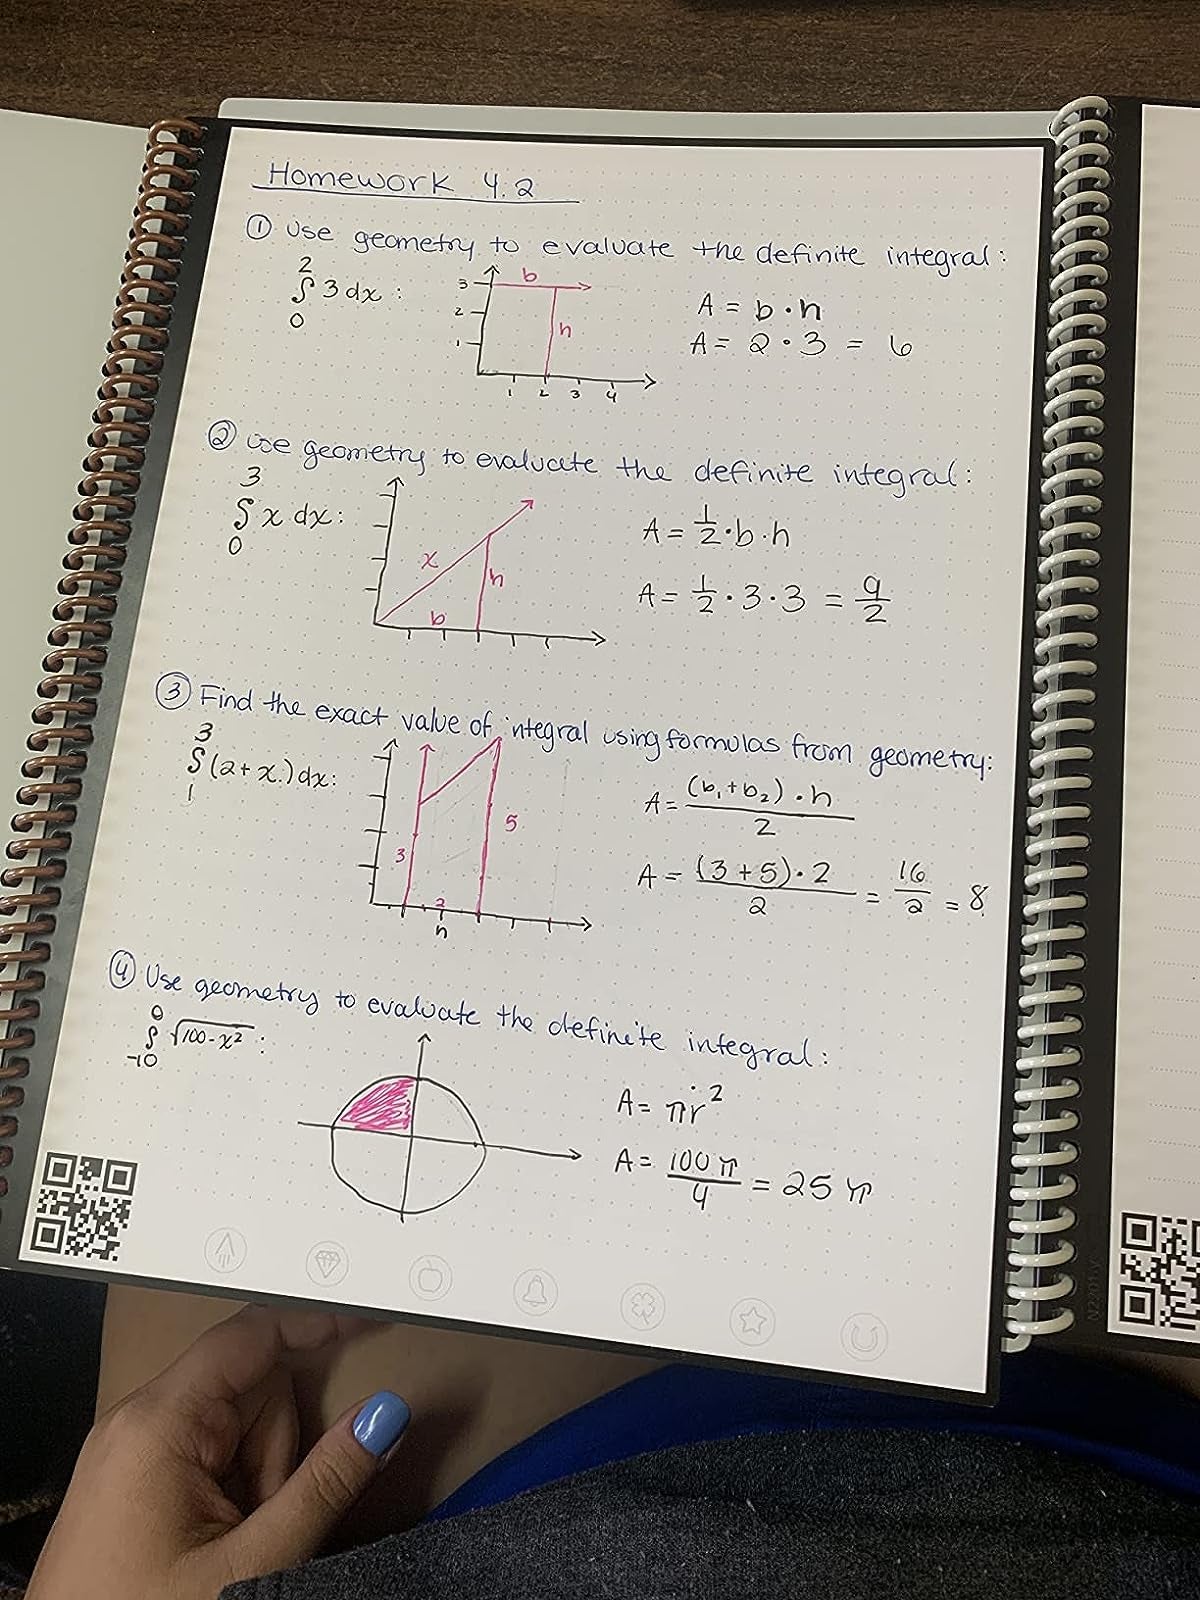 Homework 4.2
① Use geometry to evaluate the definite integral:
2
∫ 3 dx :
0
3
2
1
b
h
1 2 3 4
A = b · h
A = 2 · 3 = 6
② Use geometry to evaluate the definite integral:
3
∫ x dx :
0
x
h
b
A = 1/2 · b · h
A = 1/2 · 3 · 3 = 9/2
③ Find the exact value of integral using formulas from geometry:
3
∫ (2 + x) dx :
1
3
5
2
h
A = (b₁ + b₂) · h / 2
A = (3 + 5) · 2 / 2 = 16/2 = 8
④ Use geometry to evaluate the definite integral:
0
∫ √100 - x² :
-10
A = πr²
A = 100π/4 = 25π